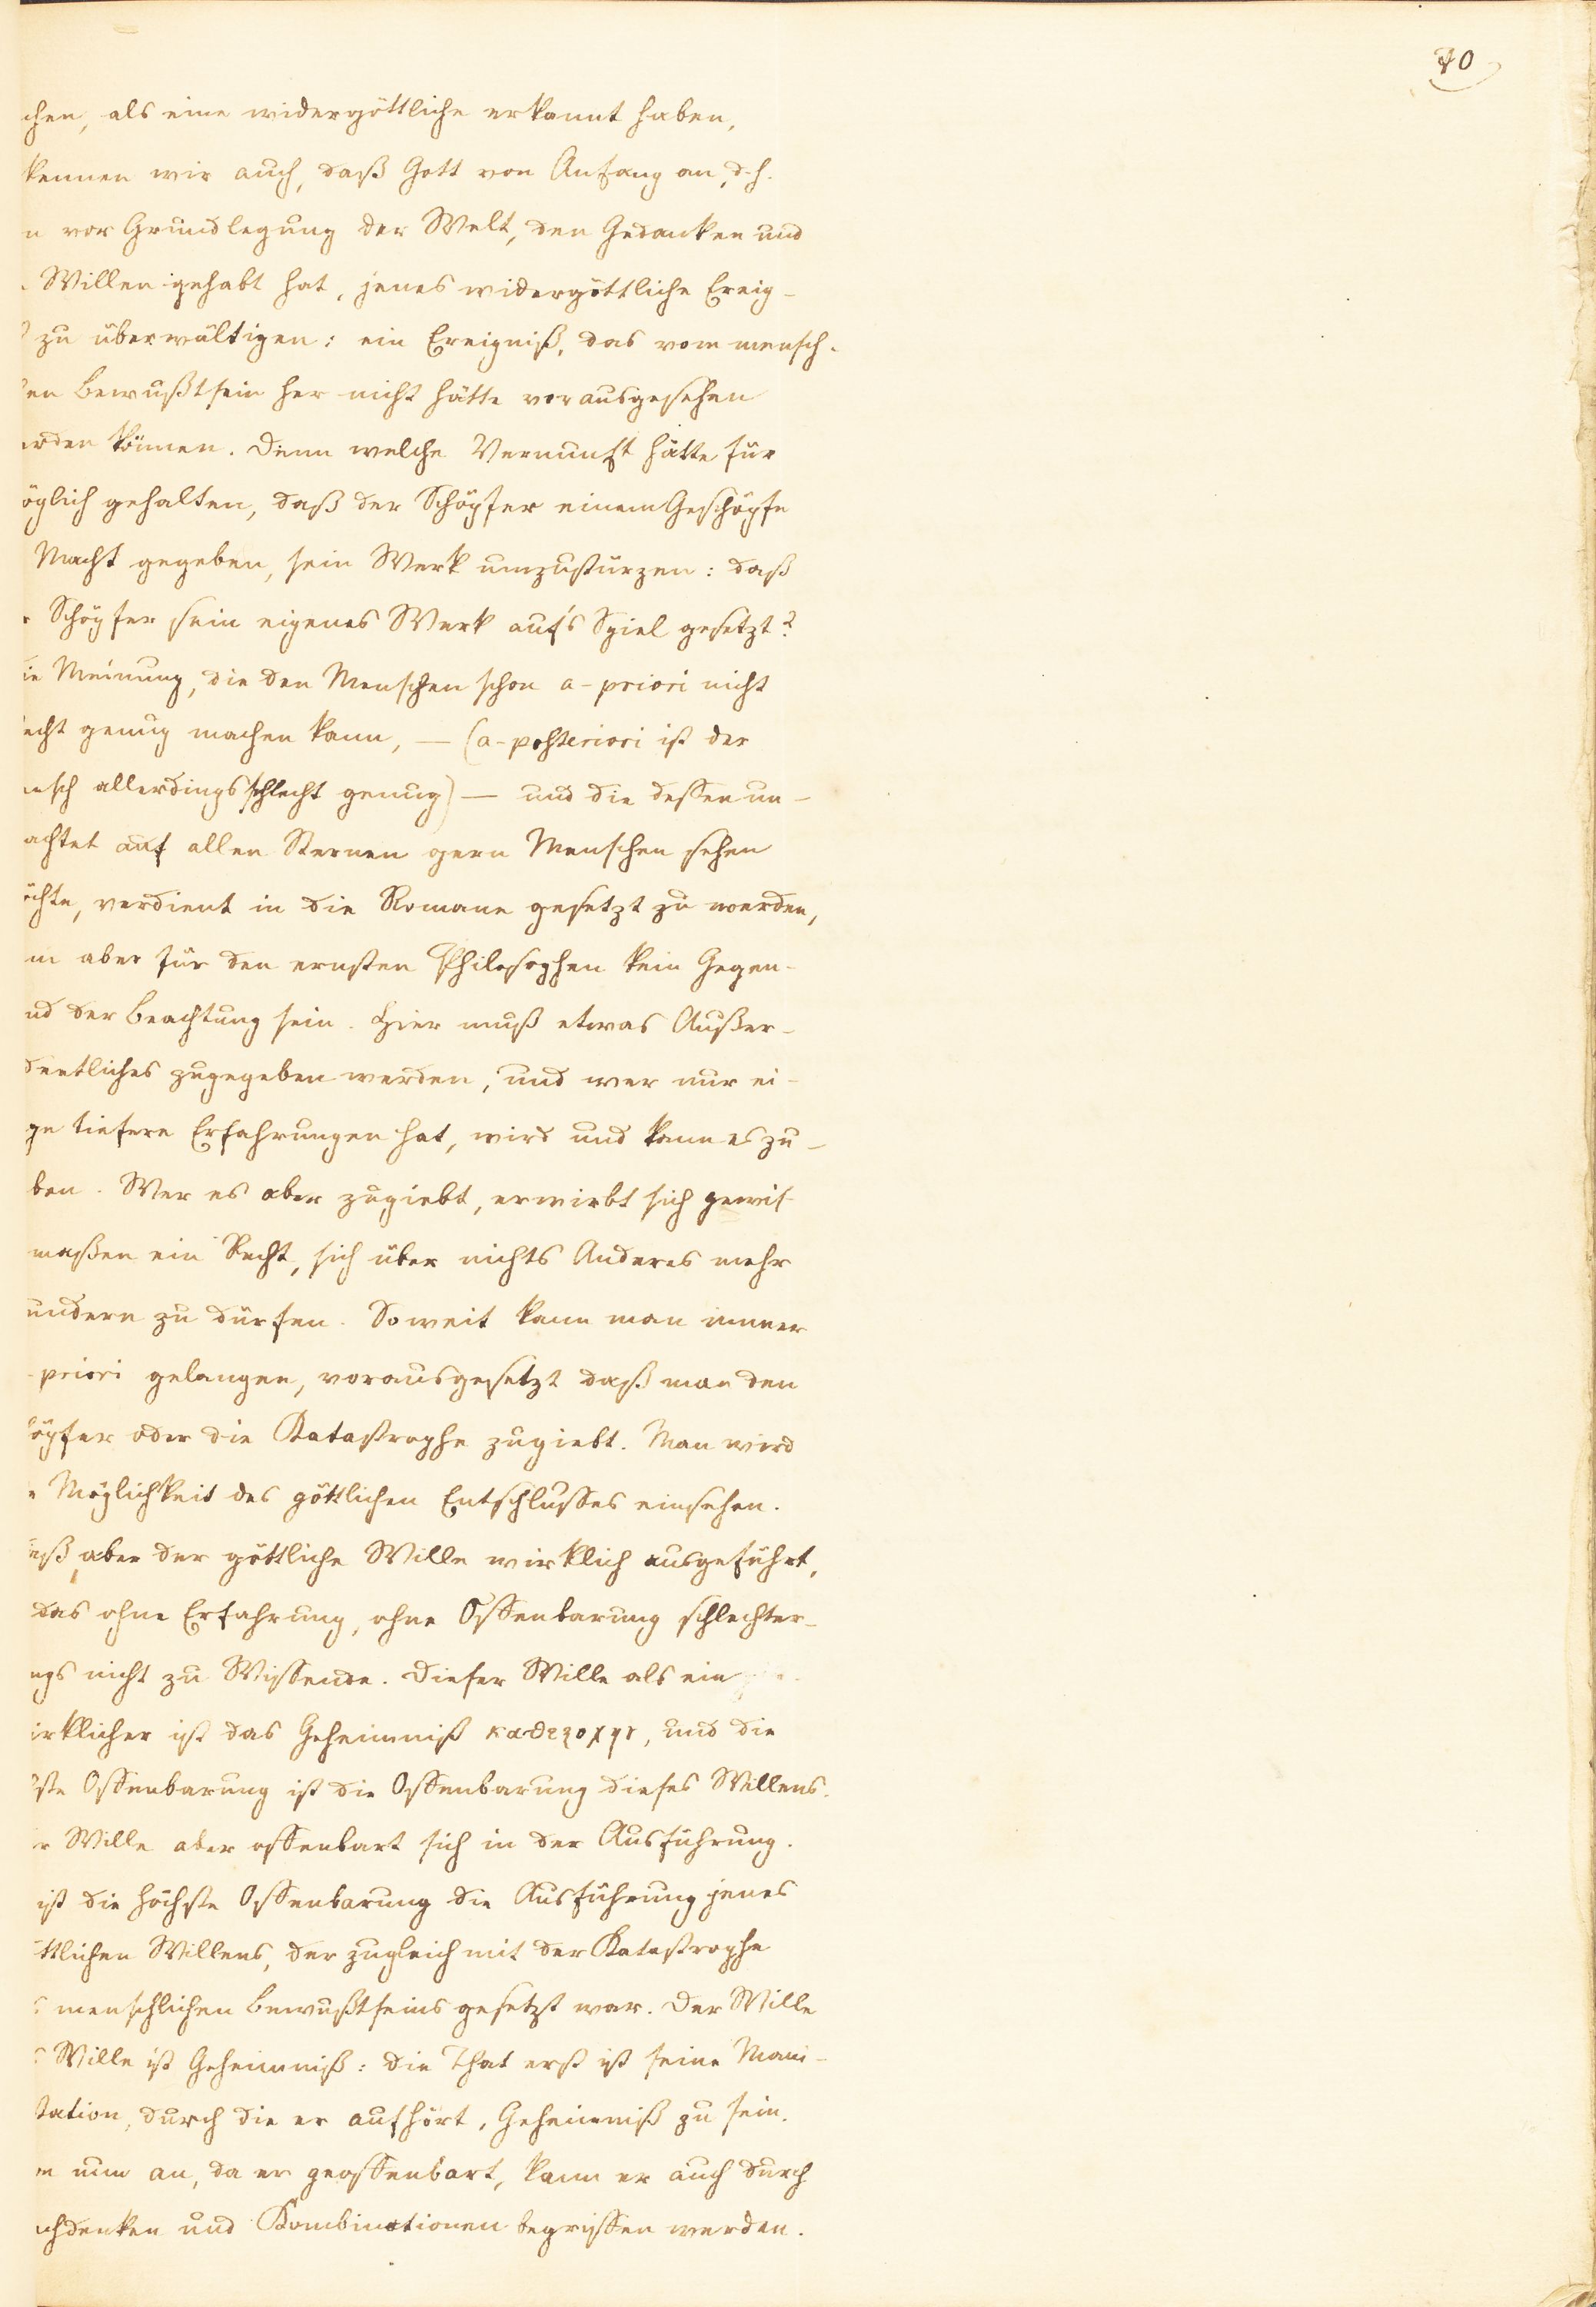 70
chen, als eine widergöttliche erkannt haben,
kennen wir auch, daß Gott von Anfang an, d. h.
n vor Grundlegung der Welt, den Gedanken und
Willen gehabt hat, jenes widergöttliche Ereig-
zu überwältigen: ein Ereigniß, das vom mensch-
en Bewußtsein her nicht hätte vorausgesehen
erden können. Denn welche Vernunft hätte für
öglich gehalten, daß der Schöpfer einem Geschöpfe
Macht gegeben, sein Werk umzustürzen: daß
r Schöpfer sein eigenes Werk auf's Spiel gesetzt?
ie Meinung, die den Menschen schon a-priori nicht
echt genug machen kann, — (a-posteriori ist der
nsch allerdings schlecht genug) — und die dessen un-
achtet auf allen Sternen gern Menschen sehen
öchte, verdient in die Romane gesetzt zu werden,
nn aber für den ernsten Philosophen kein Gegen-
nd der Beachtung sein. Hier muß etwas Außer-
dentliches zugegeben werden, und wer nur ei-
ge tiefere Erfahrungen hat, wird und kann es zu-
ben. Wer es aber zugiebt, erwirbt sich gewis-
maßen ein Recht, sich über nichts Anderes mehr
undern zu dürfen. Soweit kann man immer
-priori gelangen, vorausgesetzt daß man den
höpfer oder die Katastrophe zugiebt. Man wird
e Möglichkeit des göttlichen Entschlusses einsehen.
aß, aber der göttliche Wille wirklich ausgeführt,
das ohne Erfahrung, ohne Offenbarung schlechter-
ngs nicht zu Wissende. Dieser Wille als ein
irklicher ist das Geheimniß καθεξοχην, und die
hste Offenbarung ist die Offenbarung dieses Willens.
r Wille aber offenbart sich in der Ausführung.
ist die höchste Offenbarung die Ausführung jenes
ttlichen Willens, der zugleich mit der Katastrophe
s menschlichen Bewußtseins gesetzt war. Der Wille
s Wille ist Geheimniß: die That erst ist seine Mani-
tation, durch die er aufhört, Geheimniß zu sein.
n nun an, da er geoffenbart, kann er auch durch
chdenken und Kombinationen begriffen werden.